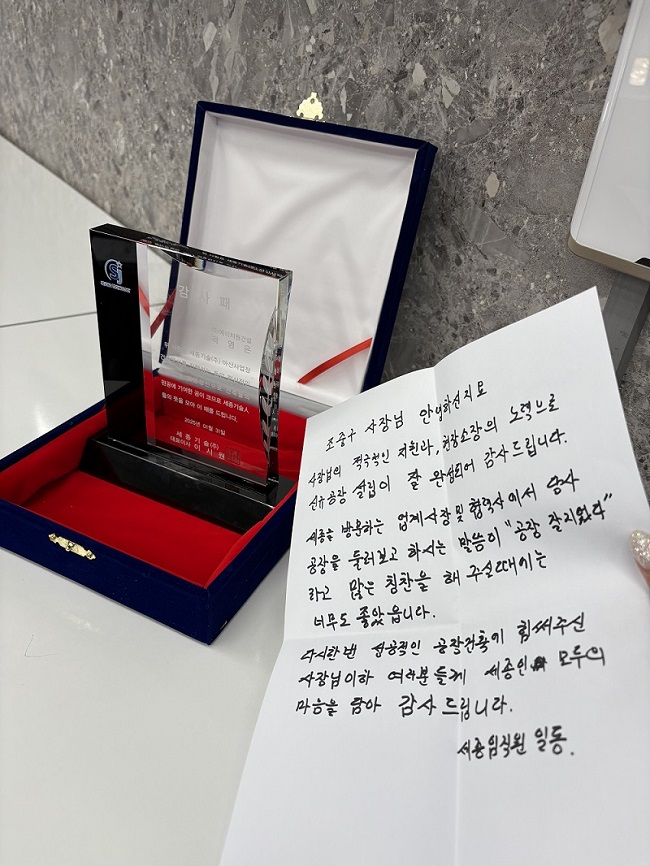 감 사 패
곽 영 은
아산사업장
완공에 기여한 공이 크므로 세종기술人
들의 뜻을 모아 이 패를 드립니다.
세 종 기 술(주)
대표이사 이 시 원
조중구 사장님 안녕하신지요
사장님의 적극적인 지원과, 현장소장의 노력으로
신규공장 설립이 잘 완성되어 감사드립니다.
세종을 방문하는 업계사장 및 협력사에서 당사
공장을 둘러보고 하시는 말씀이 "공장 잘지었다"
라고 많은 칭찬을 해 주실때에는
너무도 좋았읍니다.
다시한번 성공적인 공장건축에 힘써주신
사장님이하 여러분들께 세종인 모두의
마음을 담아 감사드립니다.
세종임직원 일동.